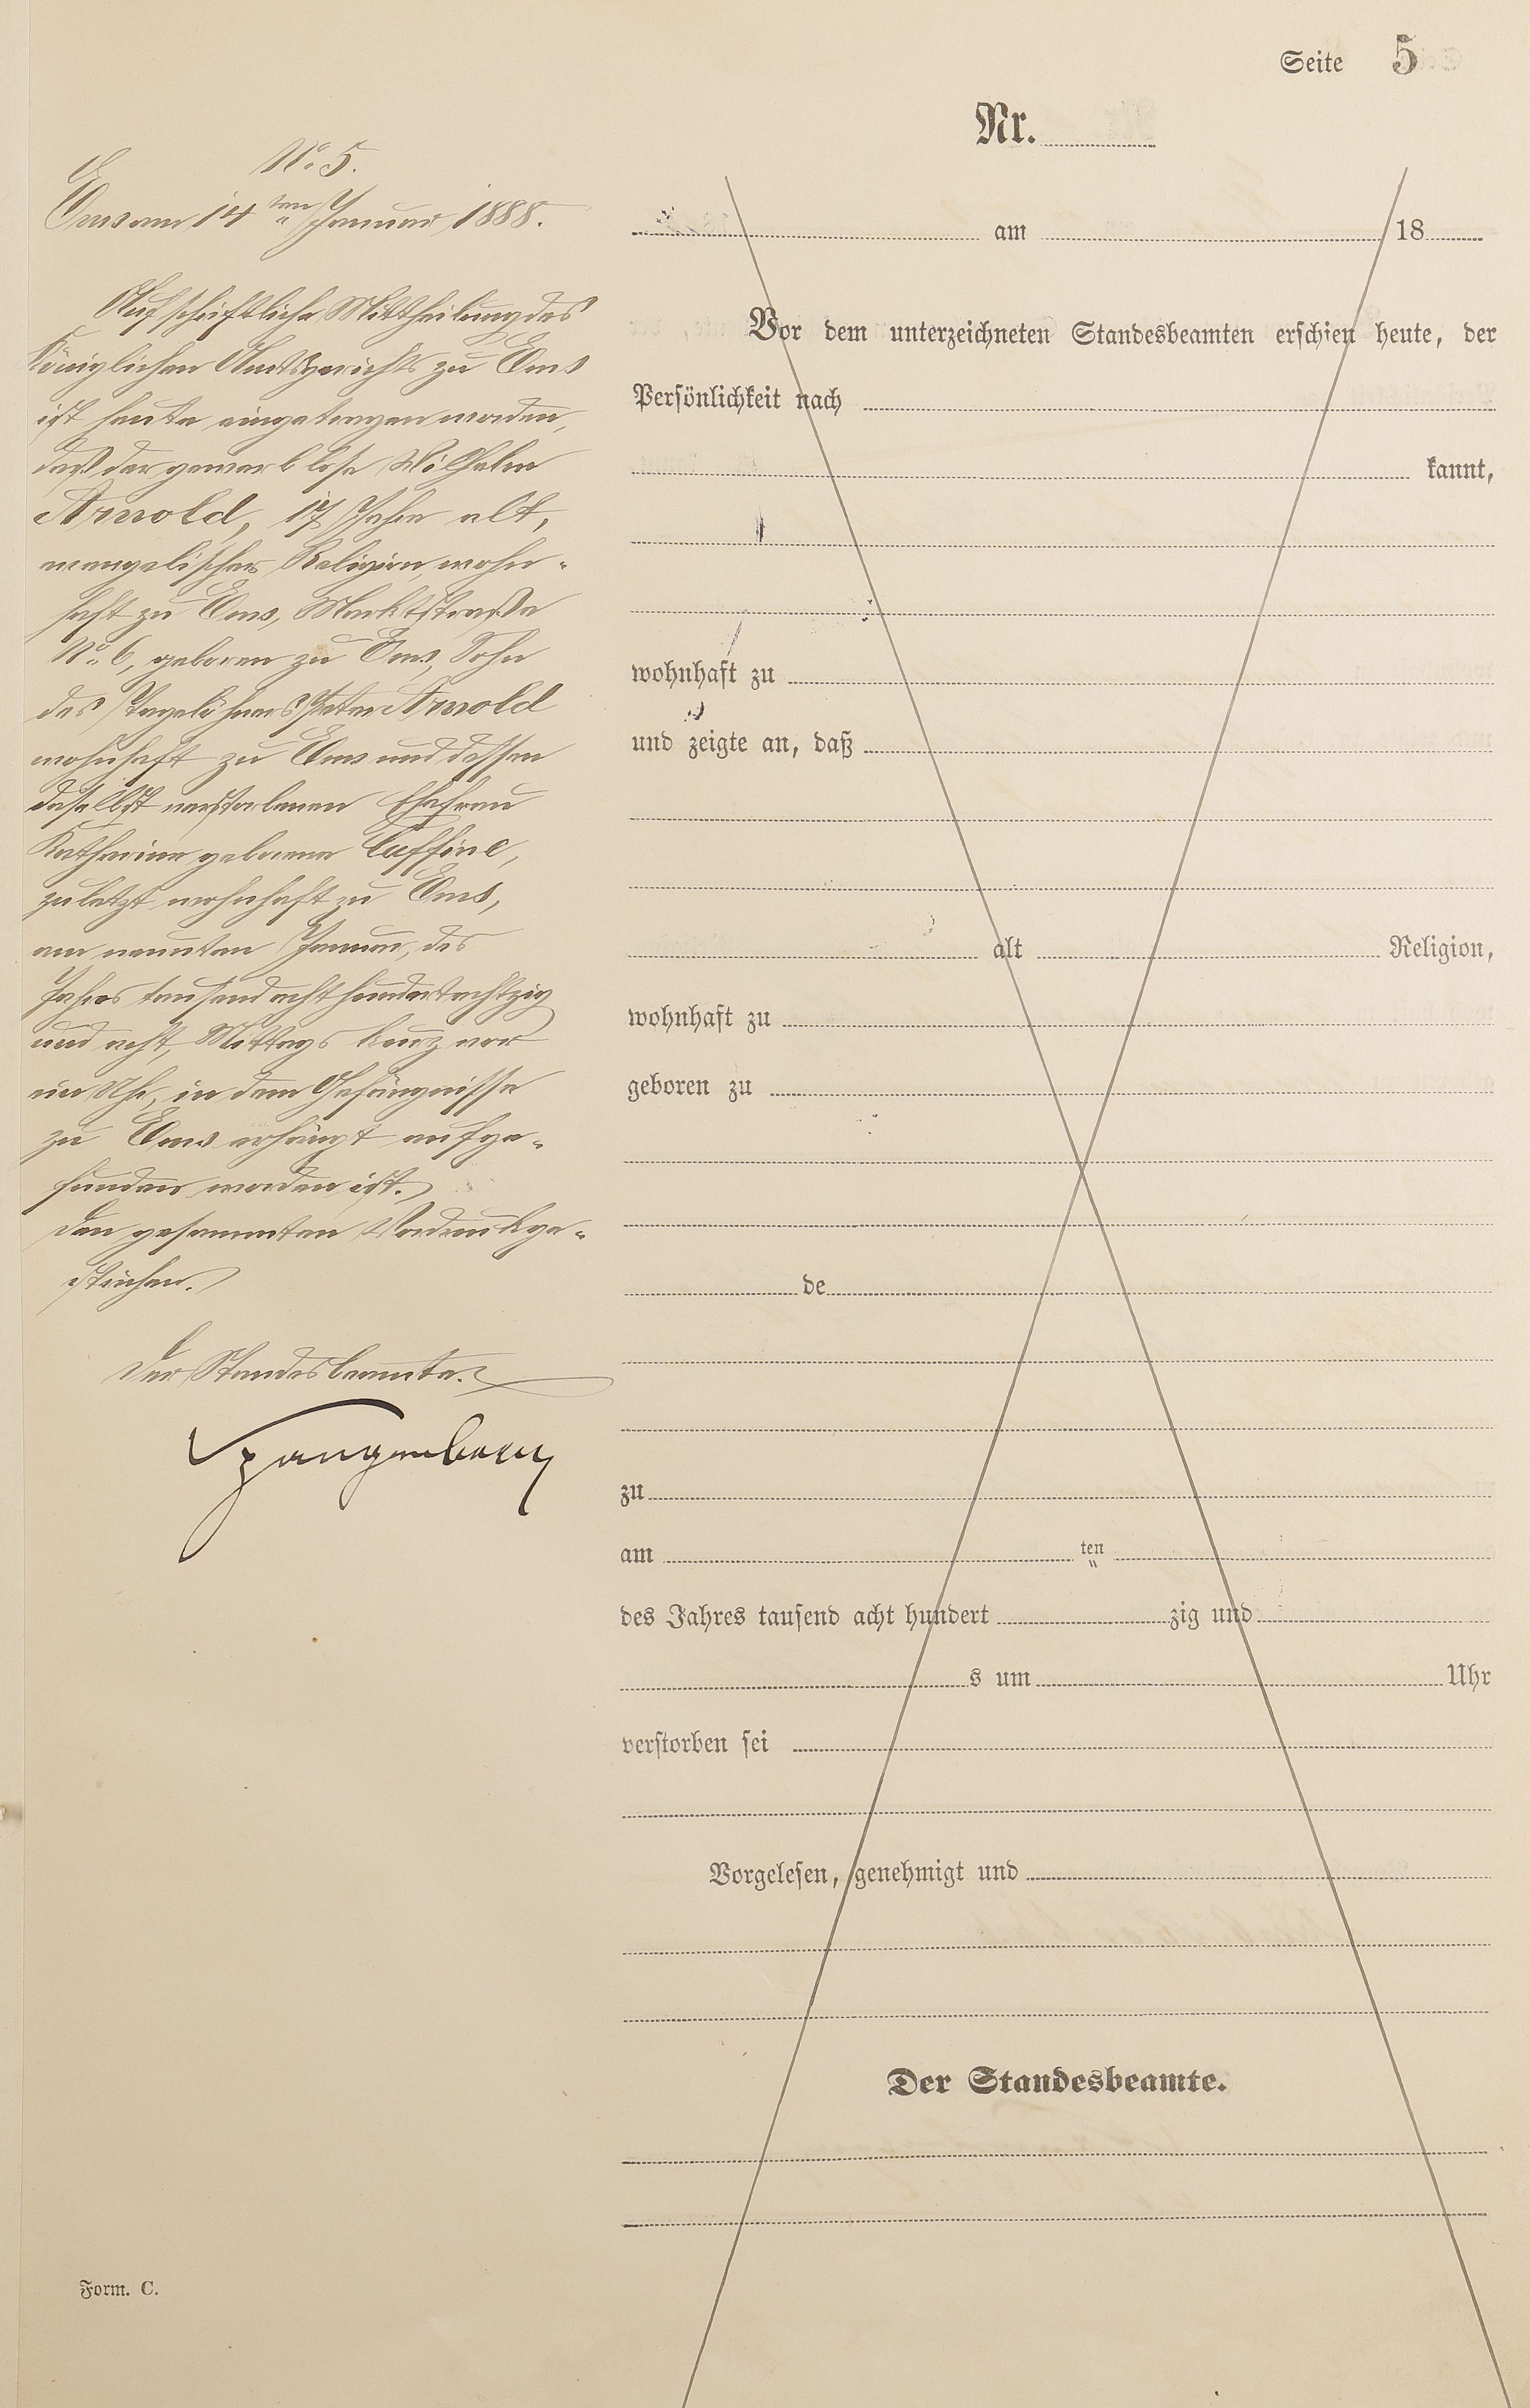 Seite 5
Nr.
No. 5.
Ems am 14ten Januar 1888.
Auf schriftliche Mittheilung des
Königlichen Amtsgerichts zu Ems
ist heute eingetragen worden,
daß der gewerblose Wilhelm
Arnold, 17 Jahre alt,
evangelischer Religion, wohn-
haft zu Ems, Marktstraße
No. 6, geboren zu Ems, Sohn
des Tagelöhners Peter Arnold
wohnhaft zu Ems und dessen
daselbst verstorbenen Ehefrau
Katharine geborene Caffine,
zuletzt wohnhaft zu Ems,
am neunten Januar, des
Jahres tausend acht hundert achtzig
und acht, Mittags kurz vor
ein Uhr, in dem Gefängnisse
zu Ems erhängt aufge-
funden worden ist.
Den gesammten Vordruck ge-
strichen.
Der Standesbeamte.
Spangenberg
am 18
Vor dem unterzeichneten Standesbeamten erschien heute, der
Persönlichkeit nach
kannt,
wohnhaft zu
und zeigte an, daß
alt Religion,
wohnhaft zu
geboren zu
de
zu
am ten
des Jahres tausend acht hundert zig und
s um Uhr
verstorben sei
Vorgelesen, genehmigt und
Der Standesbeamte.
Form. C.